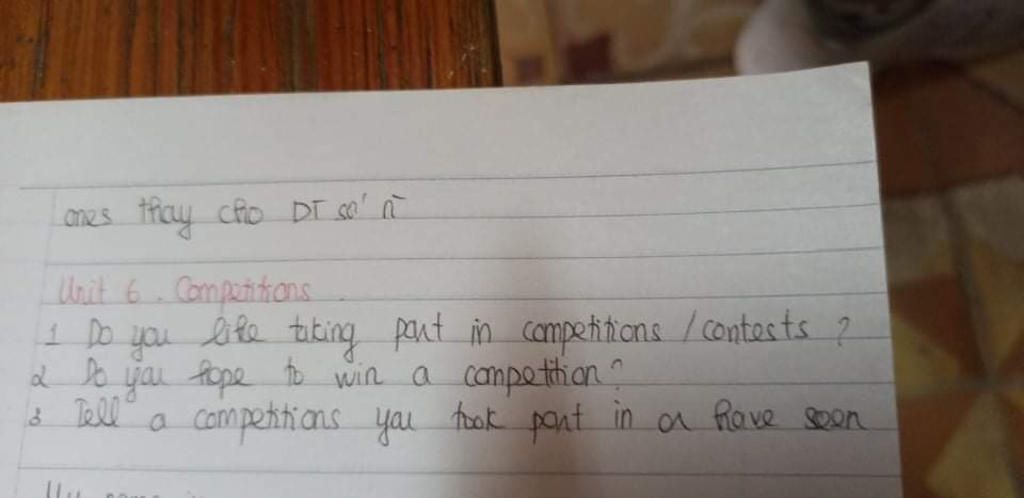 ones thay cho DT số n̄
Unit 6. Competitions.
1 Do you like taking part in competitions / contests ?
2 Do you hope to win a competition?
3 Tell a competitions you took part in or have seen